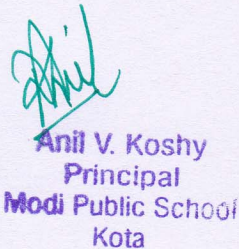 Anil
Anil V. Koshy
Principal
Modi Public School
Kota